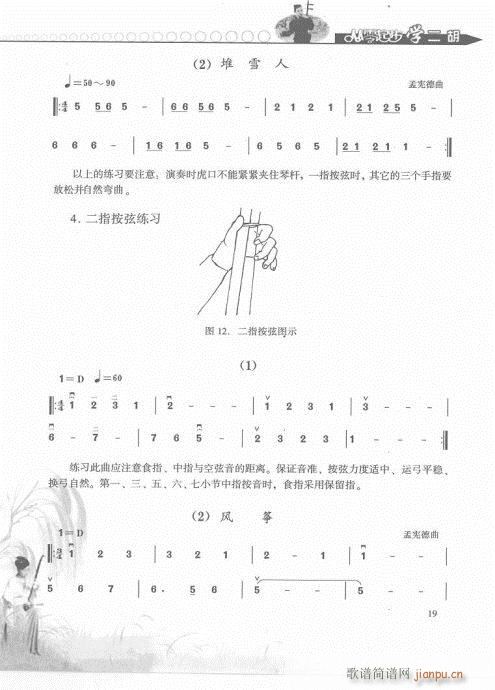 从零起步学二胡
(2) 堆 雪 人
♩=50～90
孟宪德曲
5 5 6 5 - | 6 6 5 6 5 - | 2 1 2 1 | 2 1 2 1 5 -
6 6 6 - | 1 6 1 6 5 - | 6 5 6 5 | 2 2 2 -
以上的练习要注意：演奏时虎口不能紧紧夹住琴杆，一指按弦时，其它的三个手指要
放松并自然弯曲。
4. 二指按弦练习
图 12. 二指按弦图示
(1)
1=D ♩=60
1 2 3 1 | 2 - - - | 1 2 3 1 | 3 - - -
6 - 7 - | 2 - 3 - | 1 2 3 2 | 1 - - -
练习此曲应注意食指、中指与空弦音的距离。保证音准、按弦力度适中、运弓平稳、
换弓自然。第一、三、五、六、七小节中指按音时，食指采用保留指。
(2) 风 筝
1=D
孟宪德曲
1 2 3 | 3 2 1 | 2 - 1 | 1 - -
5 6 7 | 6. 5 6 | 5 - - | 5 - -
19
歌谱简谱网 jianpu.cn